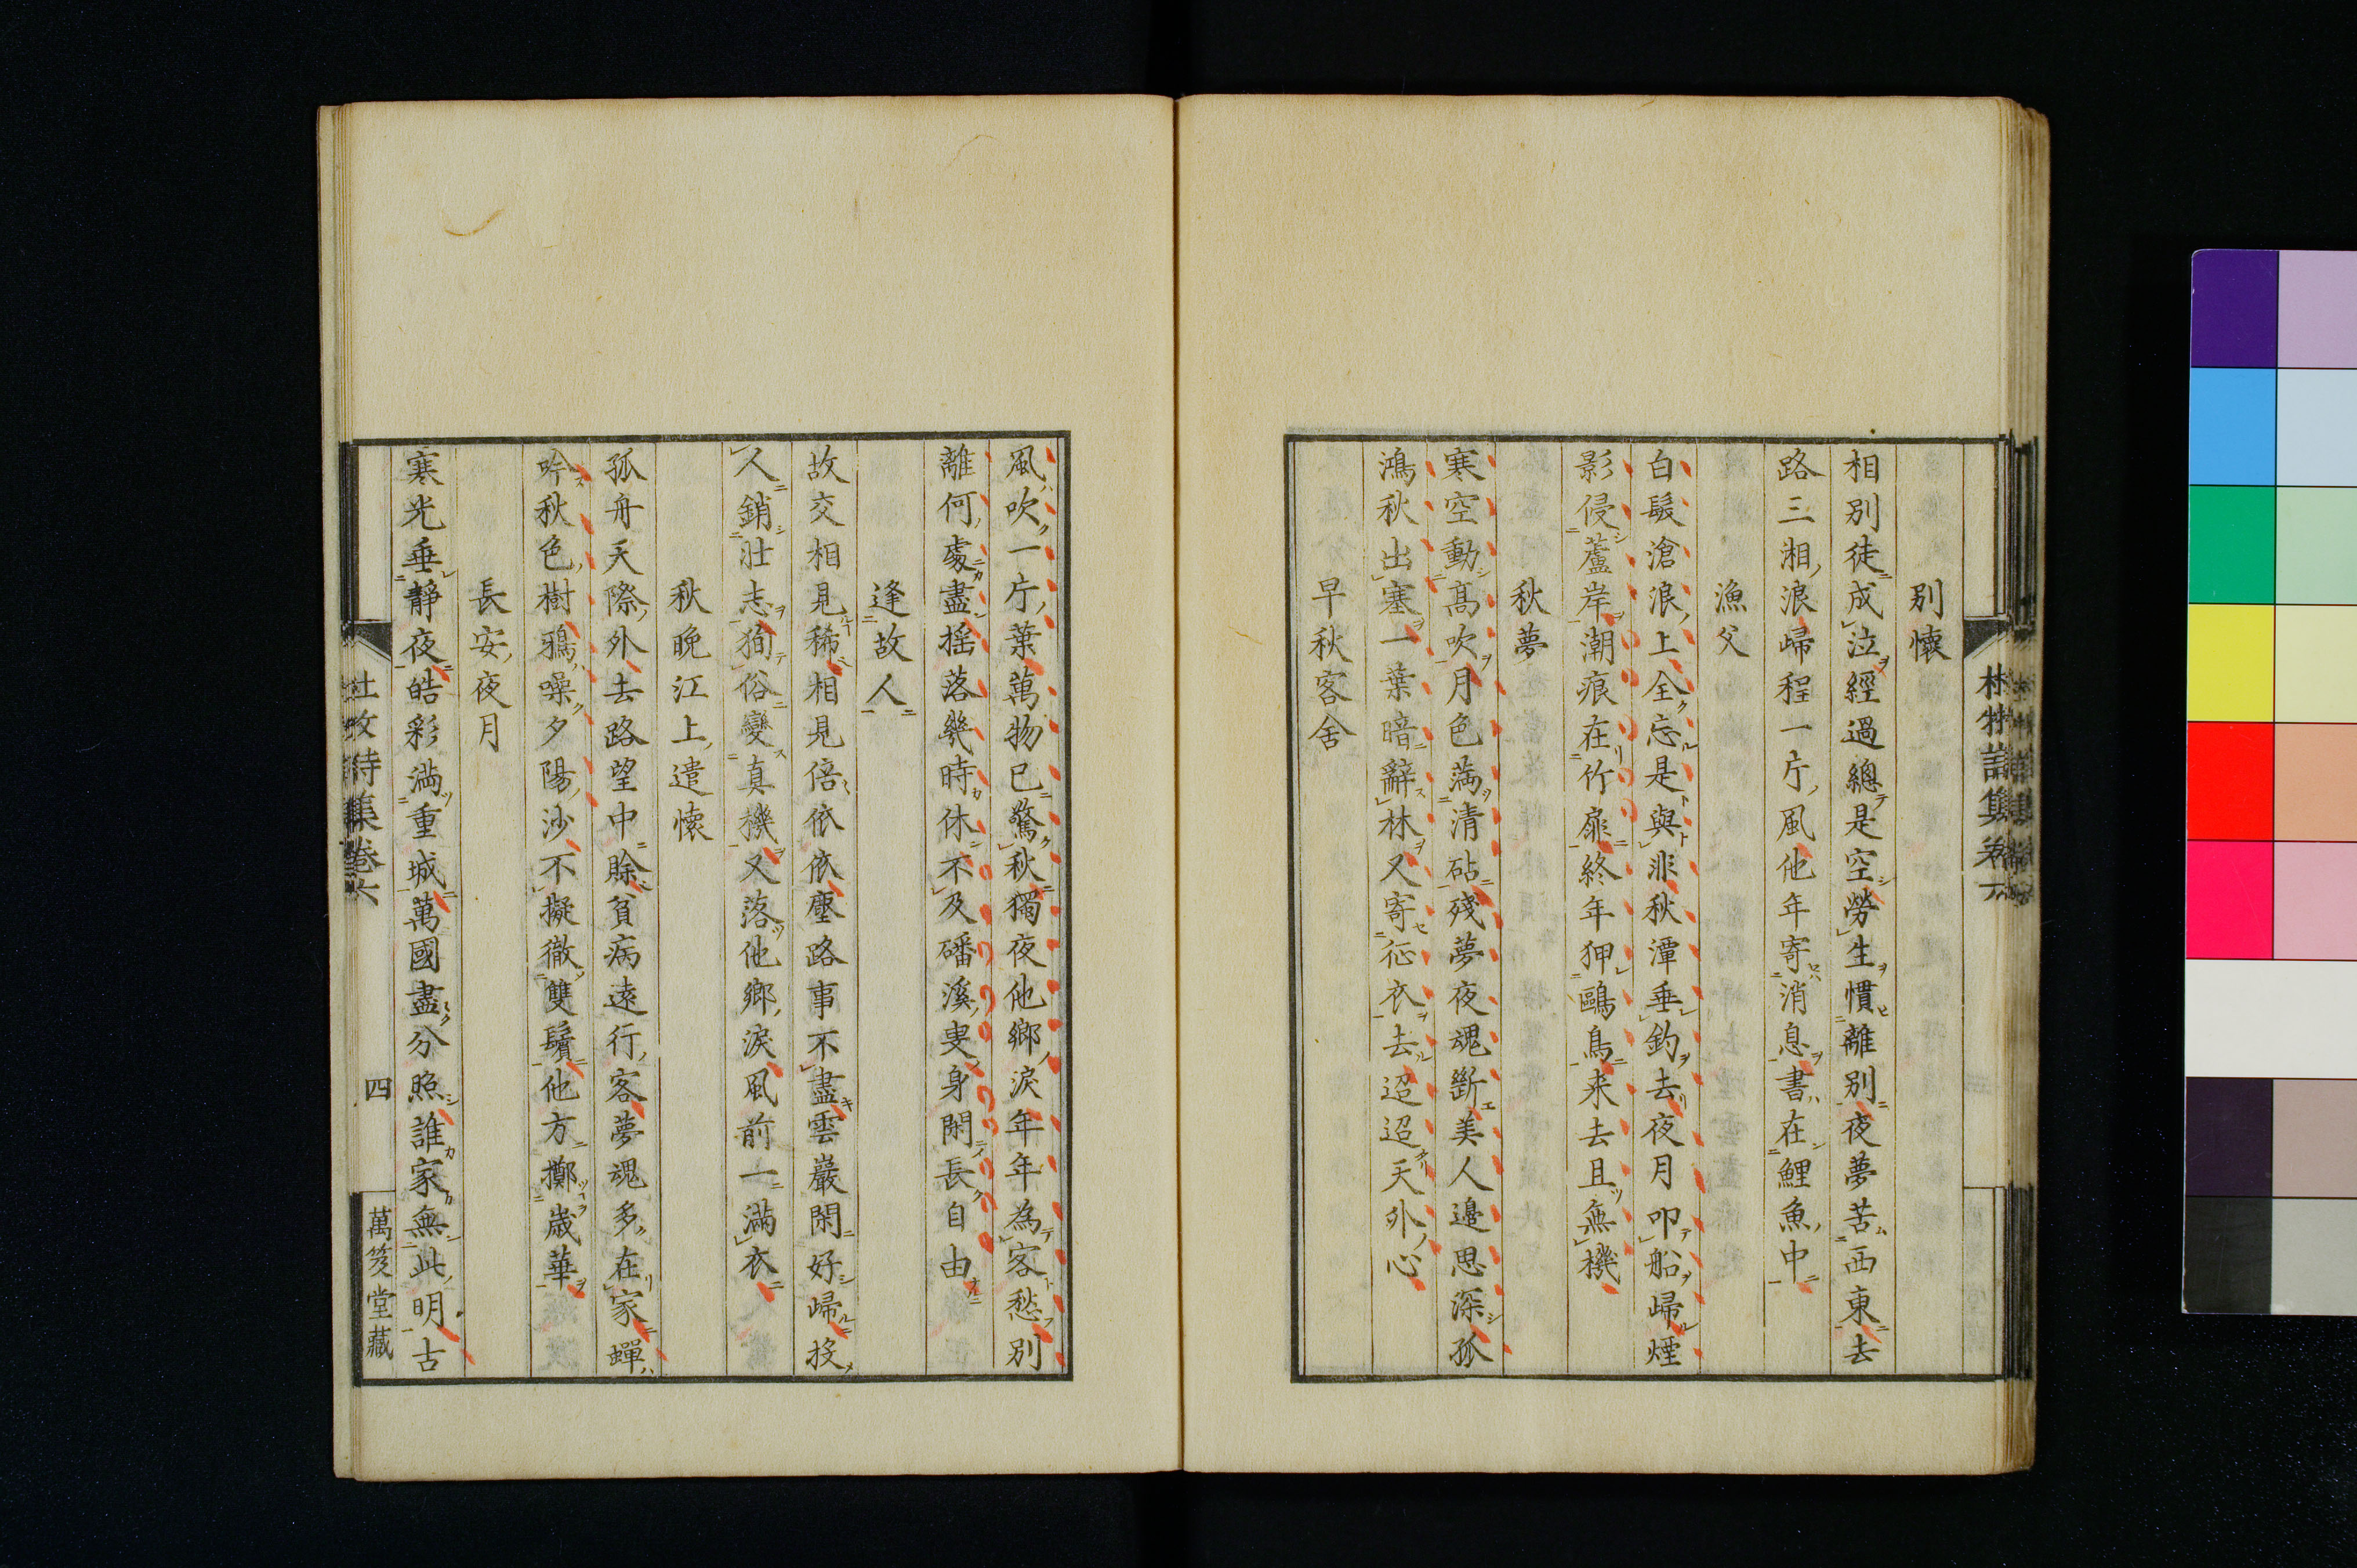 別懷
相別徒成泣經過總是空勞生慣離別夜夢苦西東去
路三湘浪歸程一片風他年寄消息書在鯉魚中
漁父
白髮滄浪上全忘是與非秋潭垂釣去夜月叩船歸煙
影侵蘆岸潮痕在竹扉終年狎鷗鳥来去且無機
秋夢
寒空動髙吹月色滿清砧殘夢夜魂斷美人邊思深孤
鴻秋出塞一葉暗辭林又寄征衣去迢迢天外心
早秋客舍
風吹一片葉萬物已驚秋獨夜他鄉淚年年為客愁別
離何處盡搖落幾時休不及磻溪叟身閑長自由
逢故人
故交相見稀相見倍依依塵路事不盡雲巖閑好歸投
人銷壯志狥俗變真機又落他鄉淚風前一滿衣
秋晚江上遣懷
孤舟天際外去路望中賒貧病遠行客夢魂多在家蟬
吟秋色樹鴉噪夕陽沙不擬徹雙鬢他方擲歲華
長安夜月
寒光垂靜夜皓彩滿重城萬國盡分照誰家無此明古
杜牧詩集卷六
四
萬笈堂藏